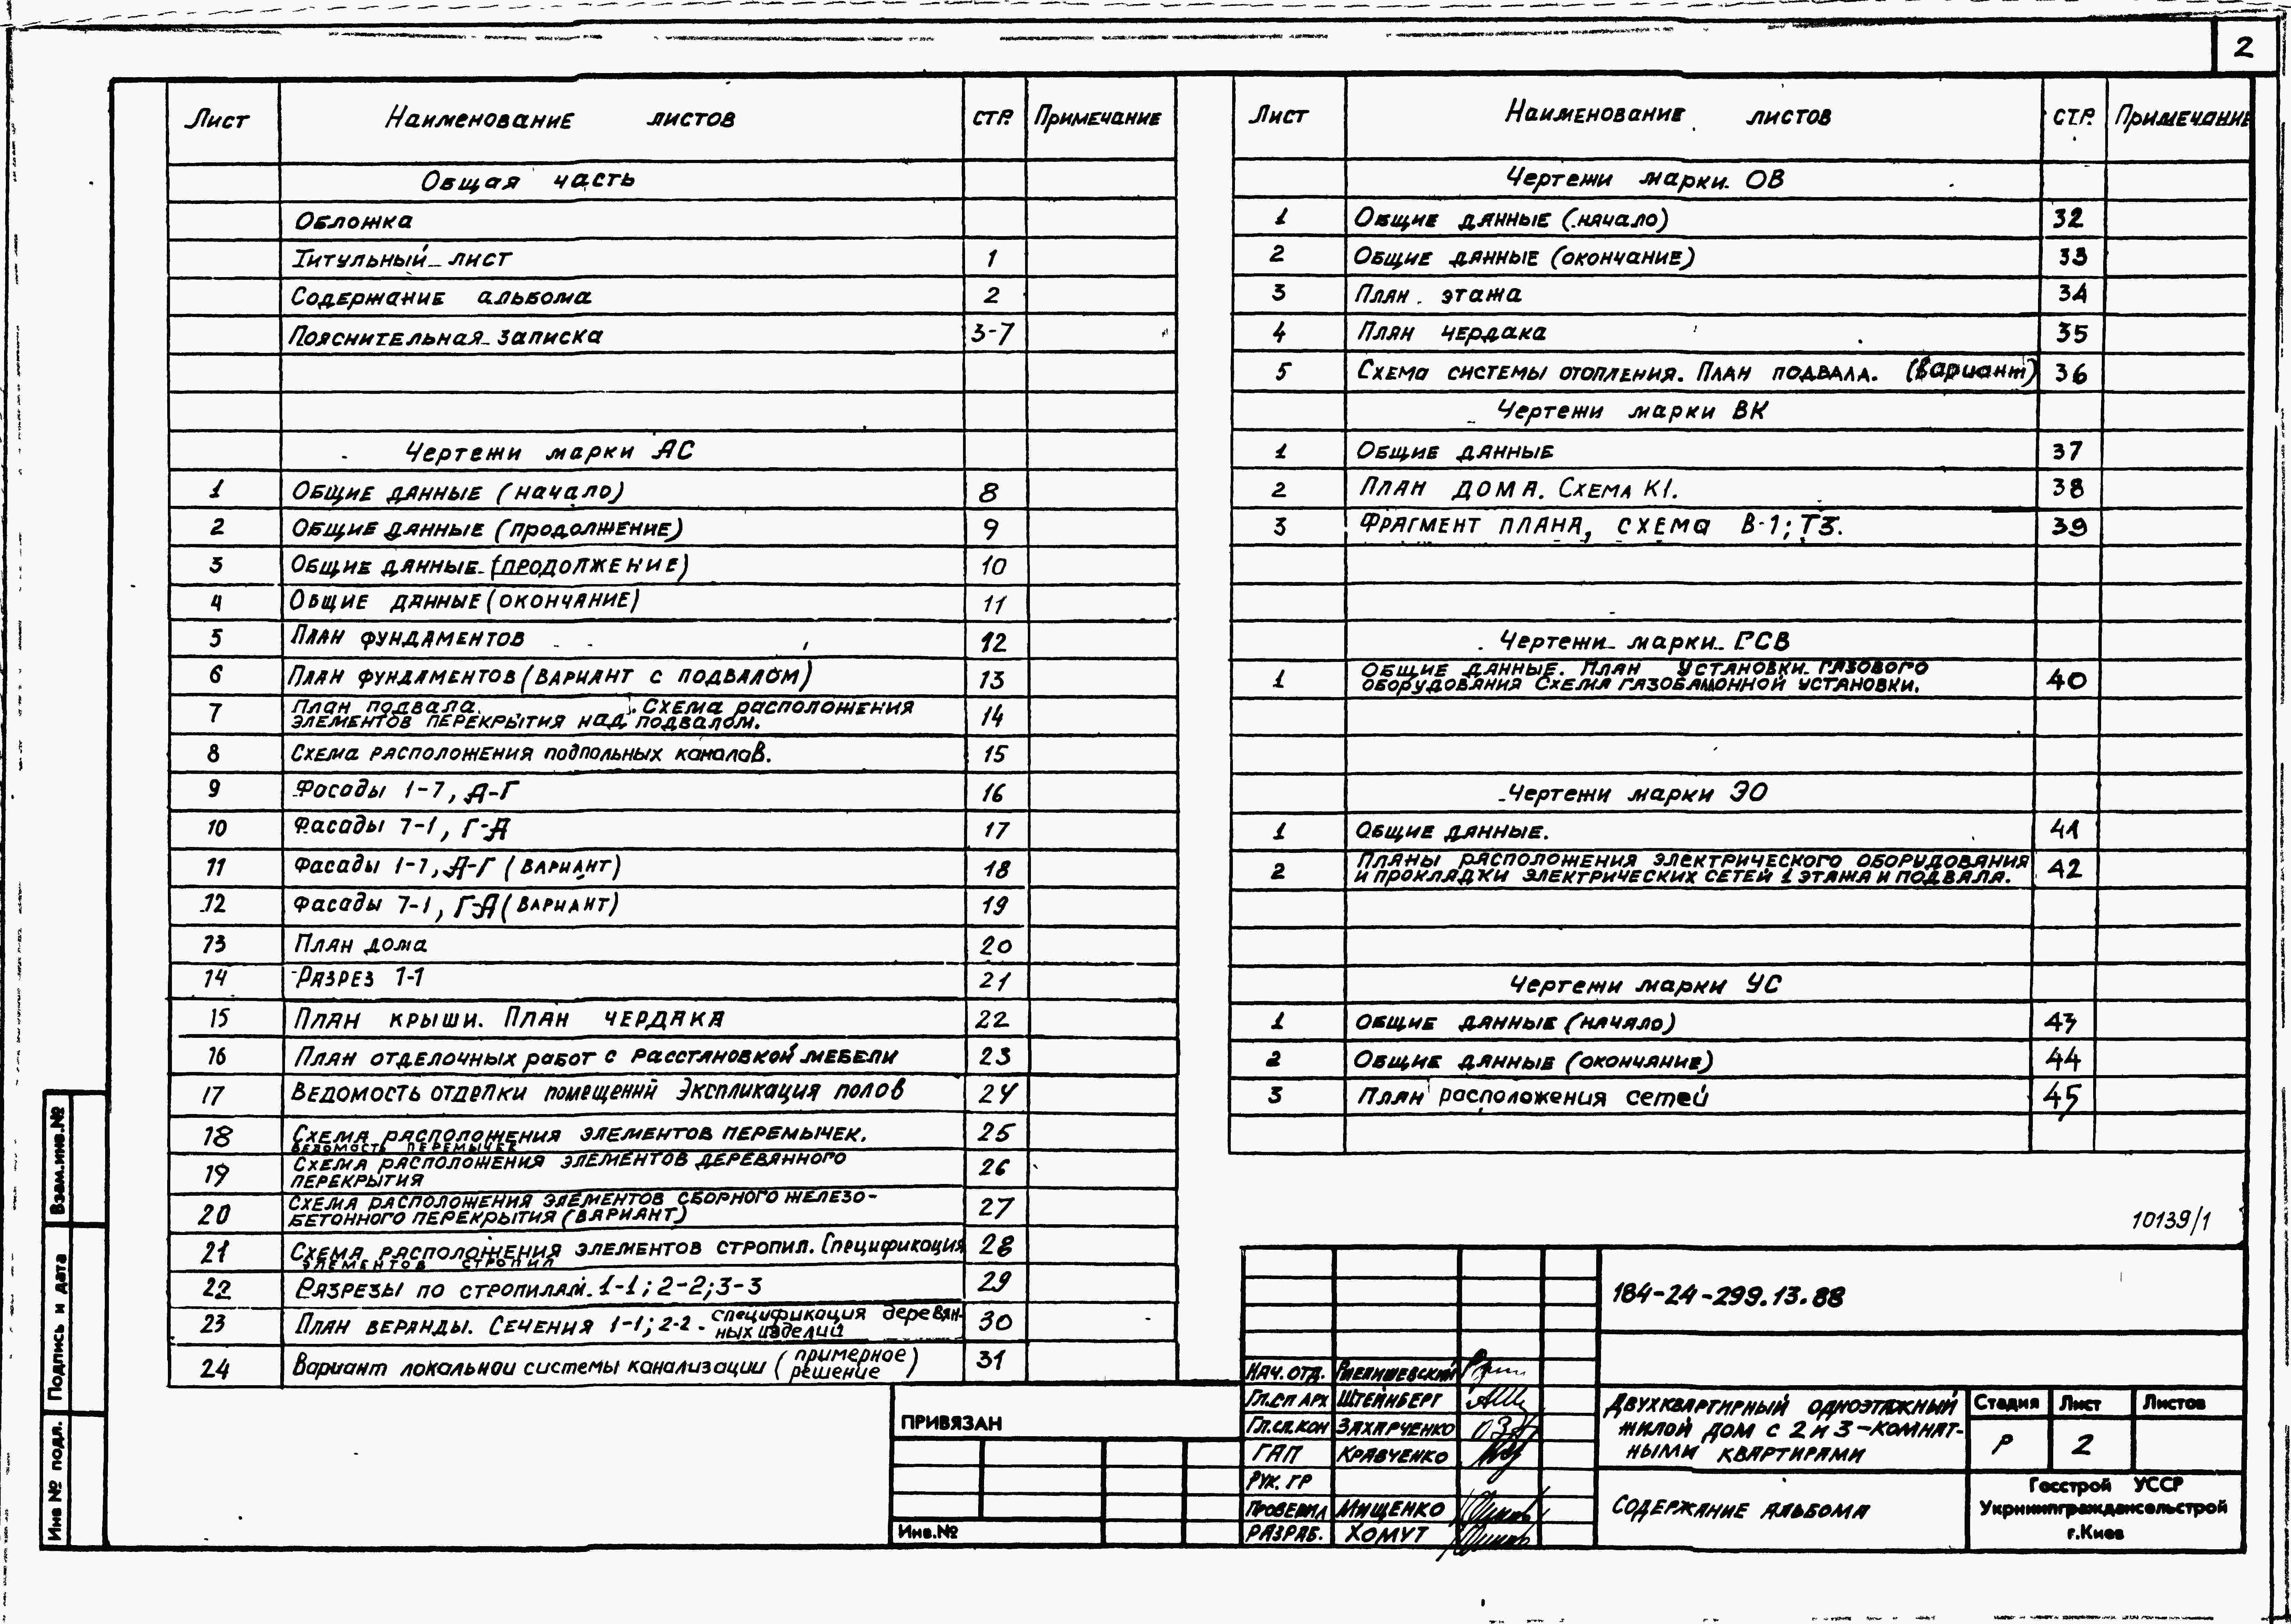 2
Лист Наименование листов СТР. Примечание
Общая часть
Обложка
Титульный лист 1
Содержание альбома 2
Пояснительная записка 3-7
Чертежи марки АС
1 Общие данные (начало) 8
2 Общие данные (продолжение) 9
3 Общие данные (продолжение) 10
4 Общие данные (окончание) 11
5 План фундаментов 12
6 План фундаментов (вариант с подвалом) 13
7 План подвала. Схема расположения
элементов перекрытия над подвалом. 14
8 Схема расположения подпольных каналов. 15
9 Фасады 1-7, А-Г 16
10 Фасады 7-1, Г-А 17
11 Фасады 1-7, А-Г (вариант) 18
12 Фасады 7-1, Г-А (вариант) 19
13 План дома 20
14 Разрез 1-1 21
15 План крыши. План чердака 22
16 План отделочных работ с расстановкой мебели 23
17 Ведомость отделки помещений Экспликация полов 24
18 Схема расположения элементов перемычек. 25
Ведомость перемычек
19 Схема расположения элементов деревянного
перекрытия 26
20 Схема расположения элементов сборного железо-
бетонного перекрытия (вариант) 27
21 Схема расположения элементов стропил. Спецификация 28
элементов стропил
22 Разрезы по стропилам. 1-1; 2-2; 3-3 29
23 План веранды. Сечения 1-1; 2-2. спецификация деревян-
ных изделий 30
24 Вариант локальной системы канализации (примерное
решение) 31
Лист Наименование листов СТР. Примечание
Чертежи марки ОВ
1 Общие данные (начало) 32
2 Общие данные (окончание) 33
3 План этажа 34
4 План чердака 35
5 Схема системы отопления. План подвала. (вариант) 36
Чертежи марки ВК
1 Общие данные 37
2 План дома. Схема К1. 38
3 Фрагмент плана, схема В-1; Т3. 39
Чертежи марки ГСВ
1 Общие данные. План установки газового
оборудования Схема газобалонной установки. 40
Чертежи марки ЭО
1 Общие данные. 41
2 Планы расположения электрического оборудования
и прокладки электрических сетей 1 этажа и подвала. 42
Чертежи марки УС
1 Общие данные (начало) 43
2 Общие данные (окончание) 44
3 План расположения сетей 45
10139/1
184-24-299.13.88
Нач. отд.
Гл.сп арх Штейнберг
Гл.сп.кон Захарченко
ГАП Кравченко
Рук. гр
Проверил Мищенко
Разраб. Хомут
Двухквартирный одноэтажный
жилой дом с 2 и 3-комнат-
ными квартирами
Содержание альбома
Стадия Лист Листов
Р 2
Госстрой УССР
Укрниипграждансельстрой
г.Киев
ПРИВЯЗАН
Инв.№
Взам.инв.№
Подпись и дата
Инв № подл.